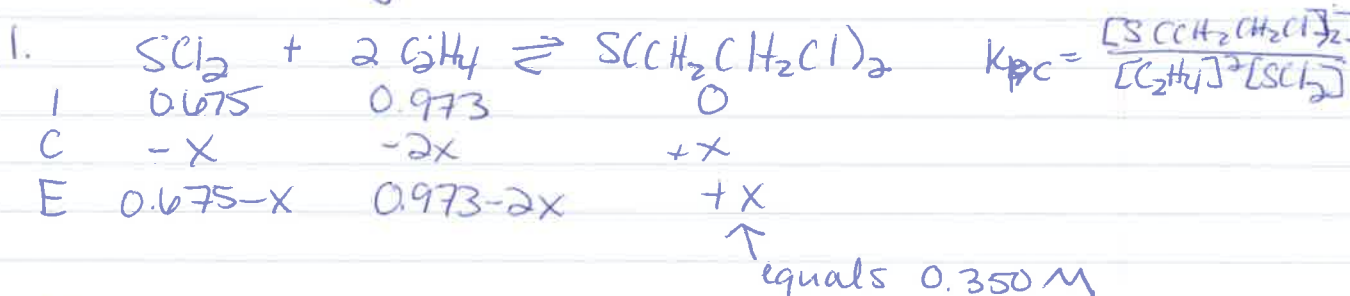 1. SCl₂ + 2 C₂H₄ ⇌ S(CH₂CH₂Cl)₂ Kc = [S(CH₂CH₂Cl)₂] / [C₂H₄]²[SCl₂]
I 0.675 0.973 0
C -x -2x +x
E 0.675-x 0.973-2x +x
↑
equals 0.350 M